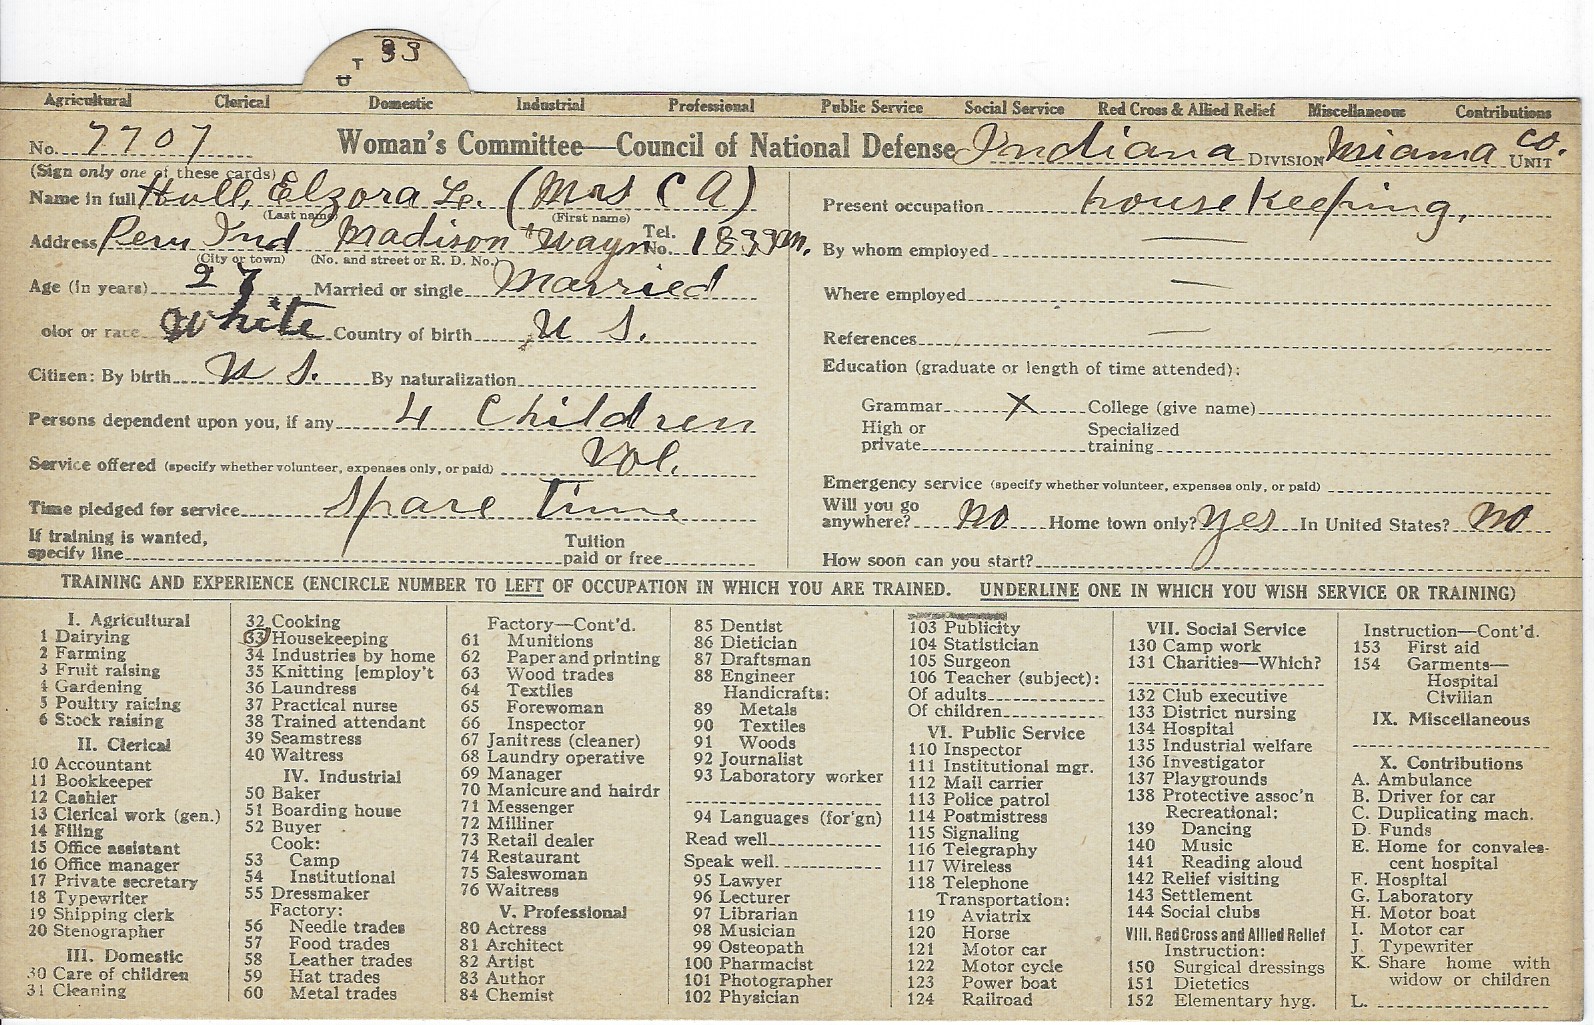 T 33
U
Agricultural Clerical Domestic Industrial Professional Public Service Social Service Red Cross & Allied Relief Miscellaneous Contributions
No. 7707 Woman's Committee—Council of National Defense Indiana DIVISION Miama Co. UNIT
(Sign only one of these cards)
Name in full Hull, Elzora L. (Mrs C A)
(Last name) (First name)
Address Peru Ind Madison + Wayn Tel. No. 1833 m.
(City or town) (No. and street or R. D. No.)
Age (in years) 27 Married or single Married
olor or race White Country of birth U S.
Citizen: By birth U S. By naturalization
Persons dependent upon you, if any 4 Children
Service offered (specify whether volunteer, expenses only, or paid) Vol.
Time pledged for service Spare time
If training is wanted,
specify line Tuition paid or free
Present occupation house keeping,
By whom employed —
Where employed —
References —
Education (graduate or length of time attended):
Grammar X College (give name)
High or private Specialized training
Emergency service (specify whether volunteer, expenses only, or paid)
Will you go anywhere? no Home town only? yes In United States? no
How soon can you start?
TRAINING AND EXPERIENCE (ENCIRCLE NUMBER TO LEFT OF OCCUPATION IN WHICH YOU ARE TRAINED. UNDERLINE ONE IN WHICH YOU WISH SERVICE OR TRAINING)
I. Agricultural
1 Dairying
2 Farming
3 Fruit raising
4 Gardening
5 Poultry raising
6 Stock raising
II. Clerical
10 Accountant
11 Bookkeeper
12 Cashier
13 Clerical work (gen.)
14 Filing
15 Office assistant
16 Office manager
17 Private secretary
18 Typewriter
19 Shipping clerk
20 Stenographer
III. Domestic
30 Care of children
31 Cleaning
32 Cooking
33 Housekeeping
34 Industries by home
35 Knitting [employ't
36 Laundress
37 Practical nurse
38 Trained attendant
39 Seamstress
40 Waitress
IV. Industrial
50 Baker
51 Boarding house
52 Buyer
Cook:
53 Camp
54 Institutional
55 Dressmaker
Factory:
56 Needle trades
57 Food trades
58 Leather trades
59 Hat trades
60 Metal trades
Factory—Cont'd.
61 Munitions
62 Paper and printing
63 Wood trades
64 Textiles
65 Forewoman
66 Inspector
67 Janitress (cleaner)
68 Laundry operative
69 Manager
70 Manicure and hairdr
71 Messenger
72 Milliner
73 Retail dealer
74 Restaurant
75 Saleswoman
76 Waitress
V. Professional
80 Actress
81 Architect
82 Artist
83 Author
84 Chemist
85 Dentist
86 Dietician
87 Draftsman
88 Engineer
Handicrafts:
89 Metals
90 Textiles
91 Woods
92 Journalist
93 Laboratory worker
94 Languages (for'gn)
Read well
Speak well
95 Lawyer
96 Lecturer
97 Librarian
98 Musician
99 Osteopath
100 Pharmacist
101 Photographer
102 Physician
103 Publicity
104 Statistician
105 Surgeon
106 Teacher (subject):
Of adults
Of children
VI. Public Service
110 Inspector
111 Institutional mgr.
112 Mail carrier
113 Police patrol
114 Postmistress
115 Signaling
116 Telegraphy
117 Wireless
118 Telephone
Transportation:
119 Aviatrix
120 Horse
121 Motor car
122 Motor cycle
123 Power boat
124 Railroad
VII. Social Service
130 Camp work
131 Charities—Which?
132 Club executive
133 District nursing
134 Hospital
135 Industrial welfare
136 Investigator
137 Playgrounds
138 Protective assoc'n
Recreational:
139 Dancing
140 Music
141 Reading aloud
142 Relief visiting
143 Settlement
144 Social clubs
VIII. Red Cross and Allied Relief
Instruction:
150 Surgical dressings
151 Dietetics
152 Elementary hyg.
Instruction—Cont'd.
153 First aid
154 Garments—
Hospital
Civilian
IX. Miscellaneous
X. Contributions
A. Ambulance
B. Driver for car
C. Duplicating mach.
D. Funds
E. Home for convales-
cent hospital
F. Hospital
G. Laboratory
H. Motor boat
I. Motor car
J. Typewriter
K. Share home with
widow or children
L.